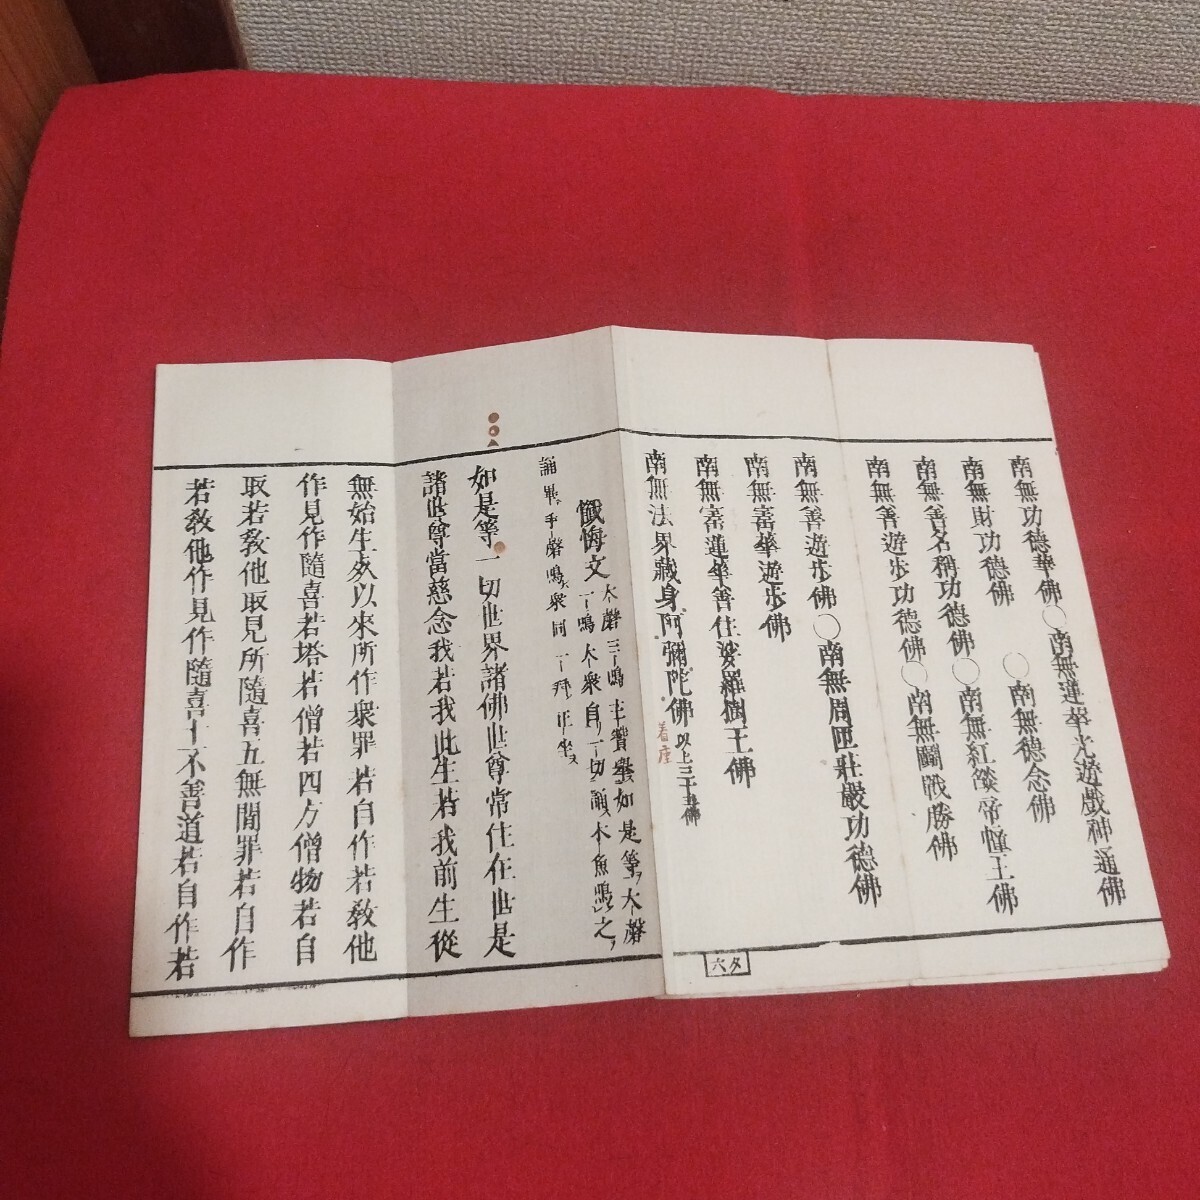 南無功德華佛〇南無蓮華光遊戲神通佛
南無財功德佛〇南無德念佛
南無善名稱功德佛〇南無紅燄帝幢王佛
南無善遊步功德佛〇南無鬭戰勝佛
南無善遊步佛〇南無周匝莊嚴功德佛
南無寶華遊步佛
南無寶蓮華善住娑羅樹王佛
南無法界藏身阿彌陀佛 以上三十五佛
着座
六夕
懺悔文 大磬三鳴主贊擧如是等ヲ大磬
一鳴大衆自一切誦木魚鳴之
誦畢手磬鳴衆同一拜正坐ス
如是等一切世界諸佛世尊常住在世是
諸世尊當慈念我若我此生若我前生從
無始生死以來所作衆罪若自作若敎他
作見作隨喜若塔若僧若四方僧物若自
取若敎他取見所隨喜五無間罪若自作
若敎他作見作隨喜十不善道若自作若